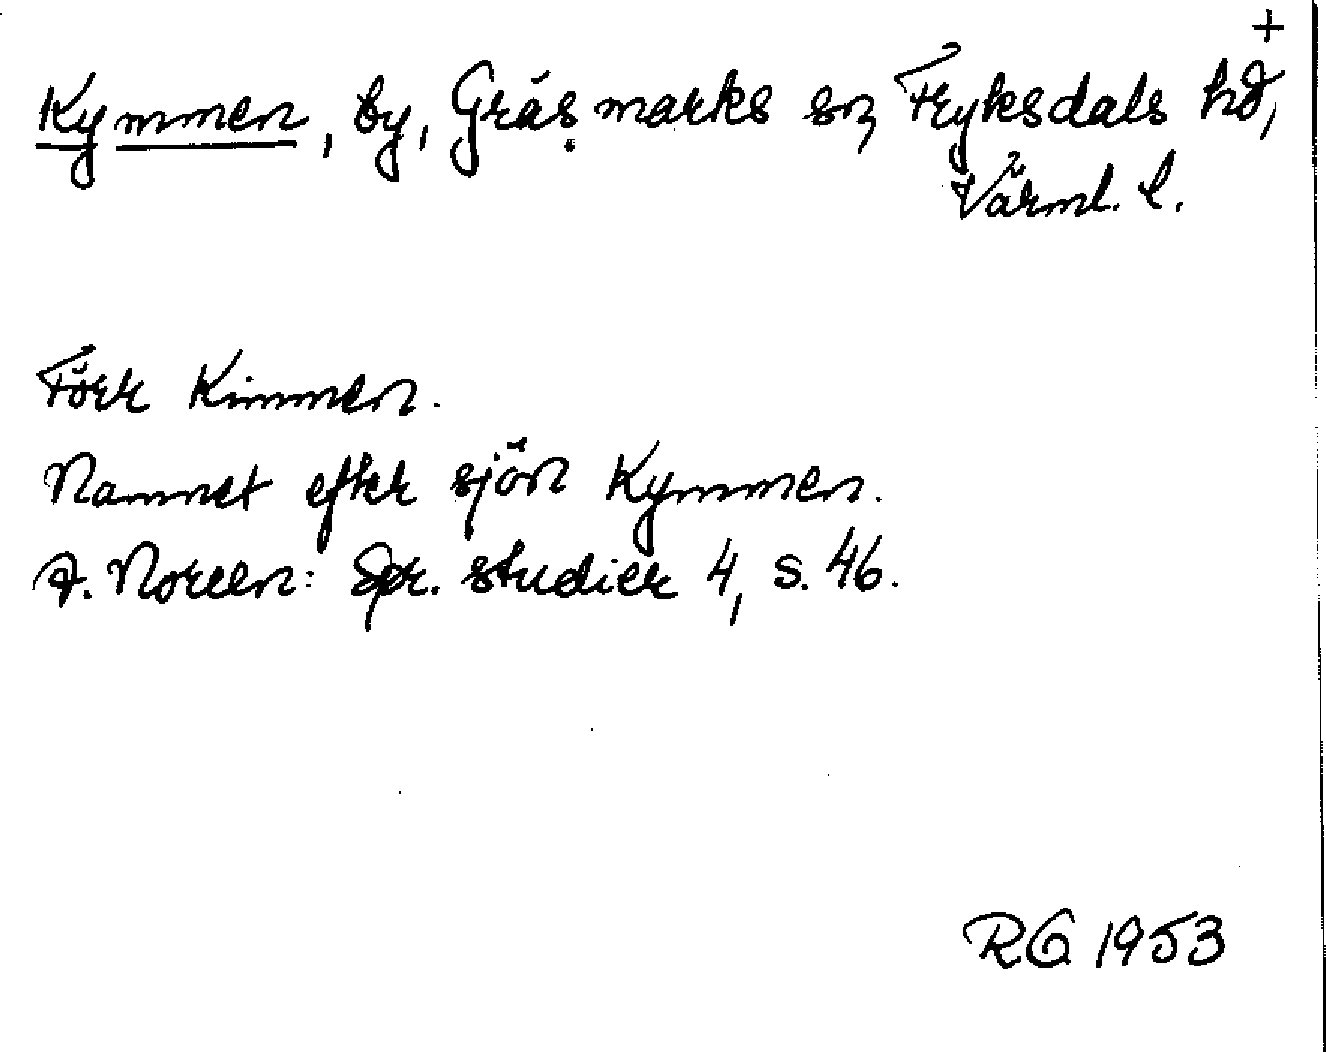 +
Kymmen, by, Gräsmarks sn, Fryksdals hd,
Värml. l.
Förr Kimmen.
Namnet efter sjön Kymmen.
A. Noreen: Spr. studier 4, s. 46.
RG 1953